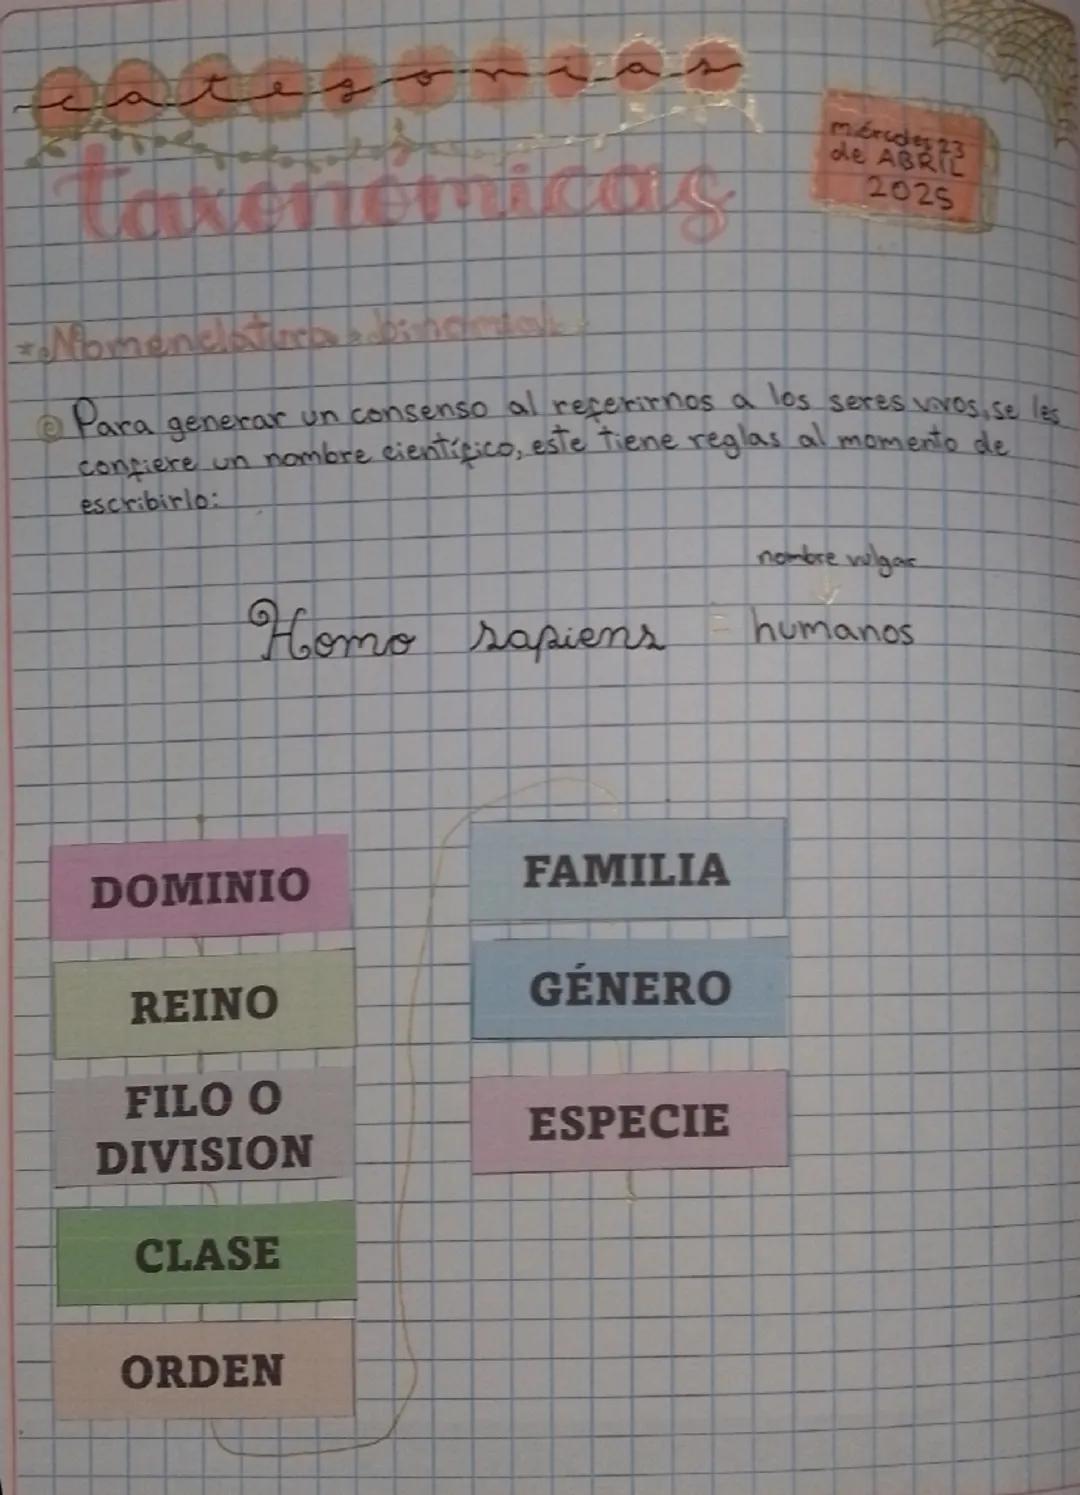 categorias
taxonómicas
miércoles 23
de ABRIL
2025
*Nomenclatura binomial:
Para generar un consenso al referirnos a los seres vivos, se les
confiere un nombre científico, este tiene reglas al momento de
escribirlo:
nombre vulgar
Homo sapiens = humanos
DOMINIO
REINO
FILO O
DIVISION
CLASE
ORDEN
FAMILIA
GÉNERO
ESPECIE